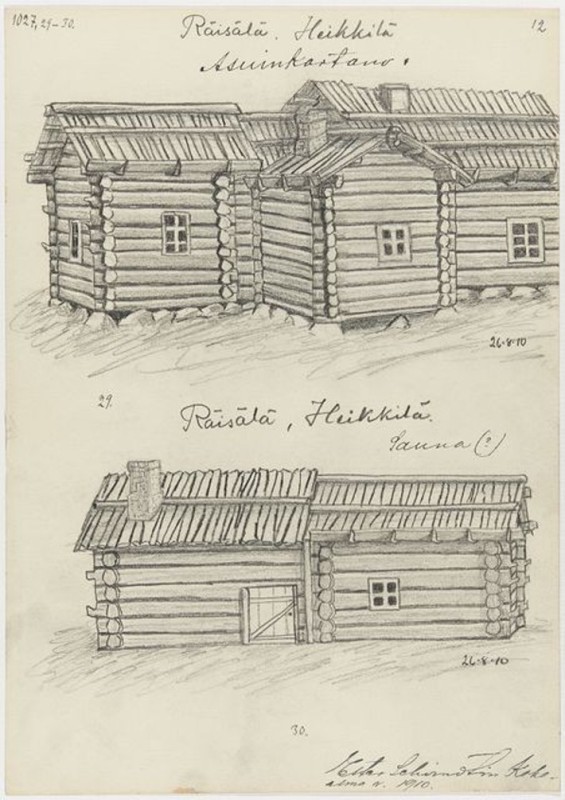 1027, 29-30.
12
Räisälä. Heikkilä
Asuinkartano.
26·8·10
29.
Räisälä, Heikkilä.
Sauna (?)
26·8·10
30.
Ester
v. 1910.